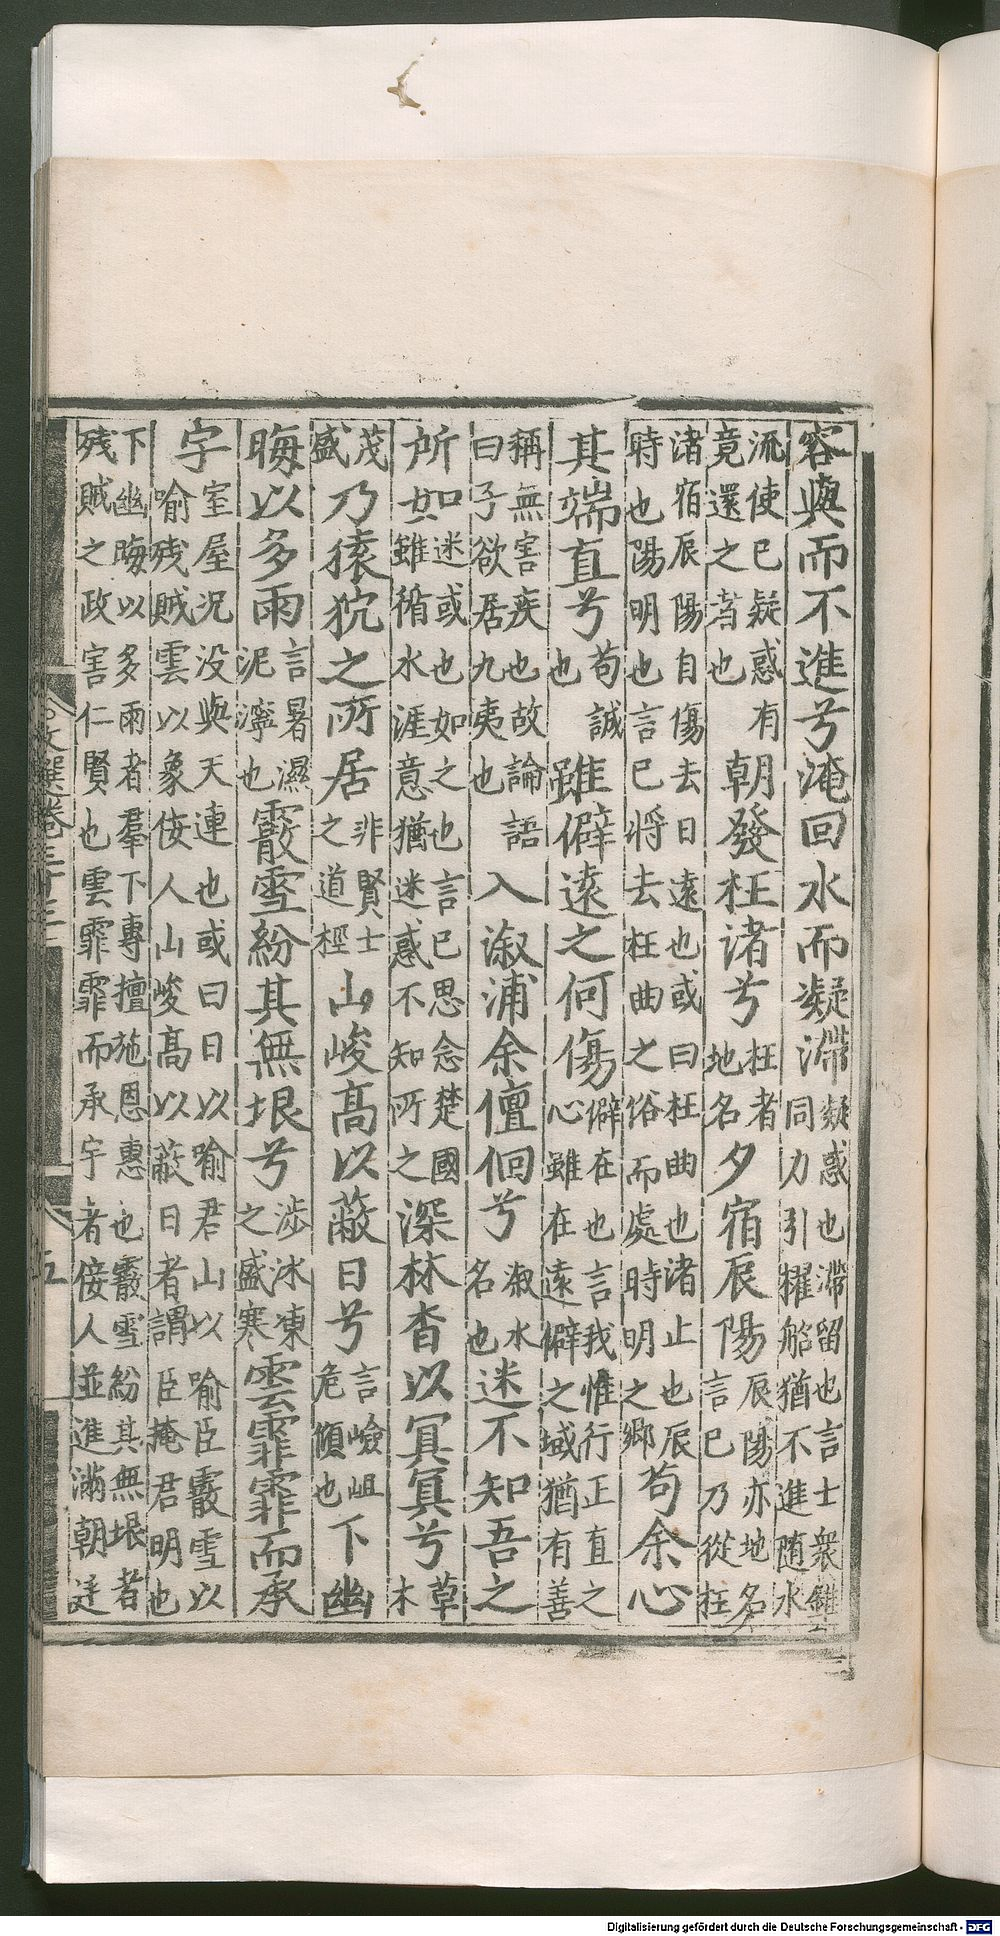 容與而不進兮淹回水而疑滯疑惑也滯留也言士衆雖同力引櫂船猶不進随水
流使已疑惑有竟還之者也朝發枉渚兮枉者地名夕宿辰陽辰陽亦地名言已乃從枉
渚宿辰陽自傷去日遠也或曰枉曲也渚止也辰時也陽明也言已將去枉曲之俗而處時明之鄉苟余心
其端直兮苟誠也雖僻遠之何傷僻在也言我惟行正直之心雖在遠僻之域猶有善
稱無害疾也故論語曰子欲居九夷也入溆浦余儃佪兮溆水名也迷不知吾之
所如迷或也如之也言已思念楚國雖循水涯意猶迷惑不知所之深林杳以冥冥兮草木
茂盛乃猿狖之所居非賢士之道徑山峻高以蔽日兮言嶮岨危傾也下幽
晦以多雨言暑濕泥濘也霰雪紛其無垠兮涉冰凍之盛寒雲霏霏而承
宇室屋況没與天連也或曰日以喻君山以喻臣霰雪以喻残賊雲以象佞人山峻高以蔽日者謂臣掩君明也
下幽晦以多雨者羣下專擅施恩惠也霰雪紛其無垠者残賊之政害仁賢也雲霏霏而承宇者佞人並進滿朝廷
文選卷三十三
五
Digitalisierung gefördert durch die Deutsche Forschungsgemeinschaft - DFG